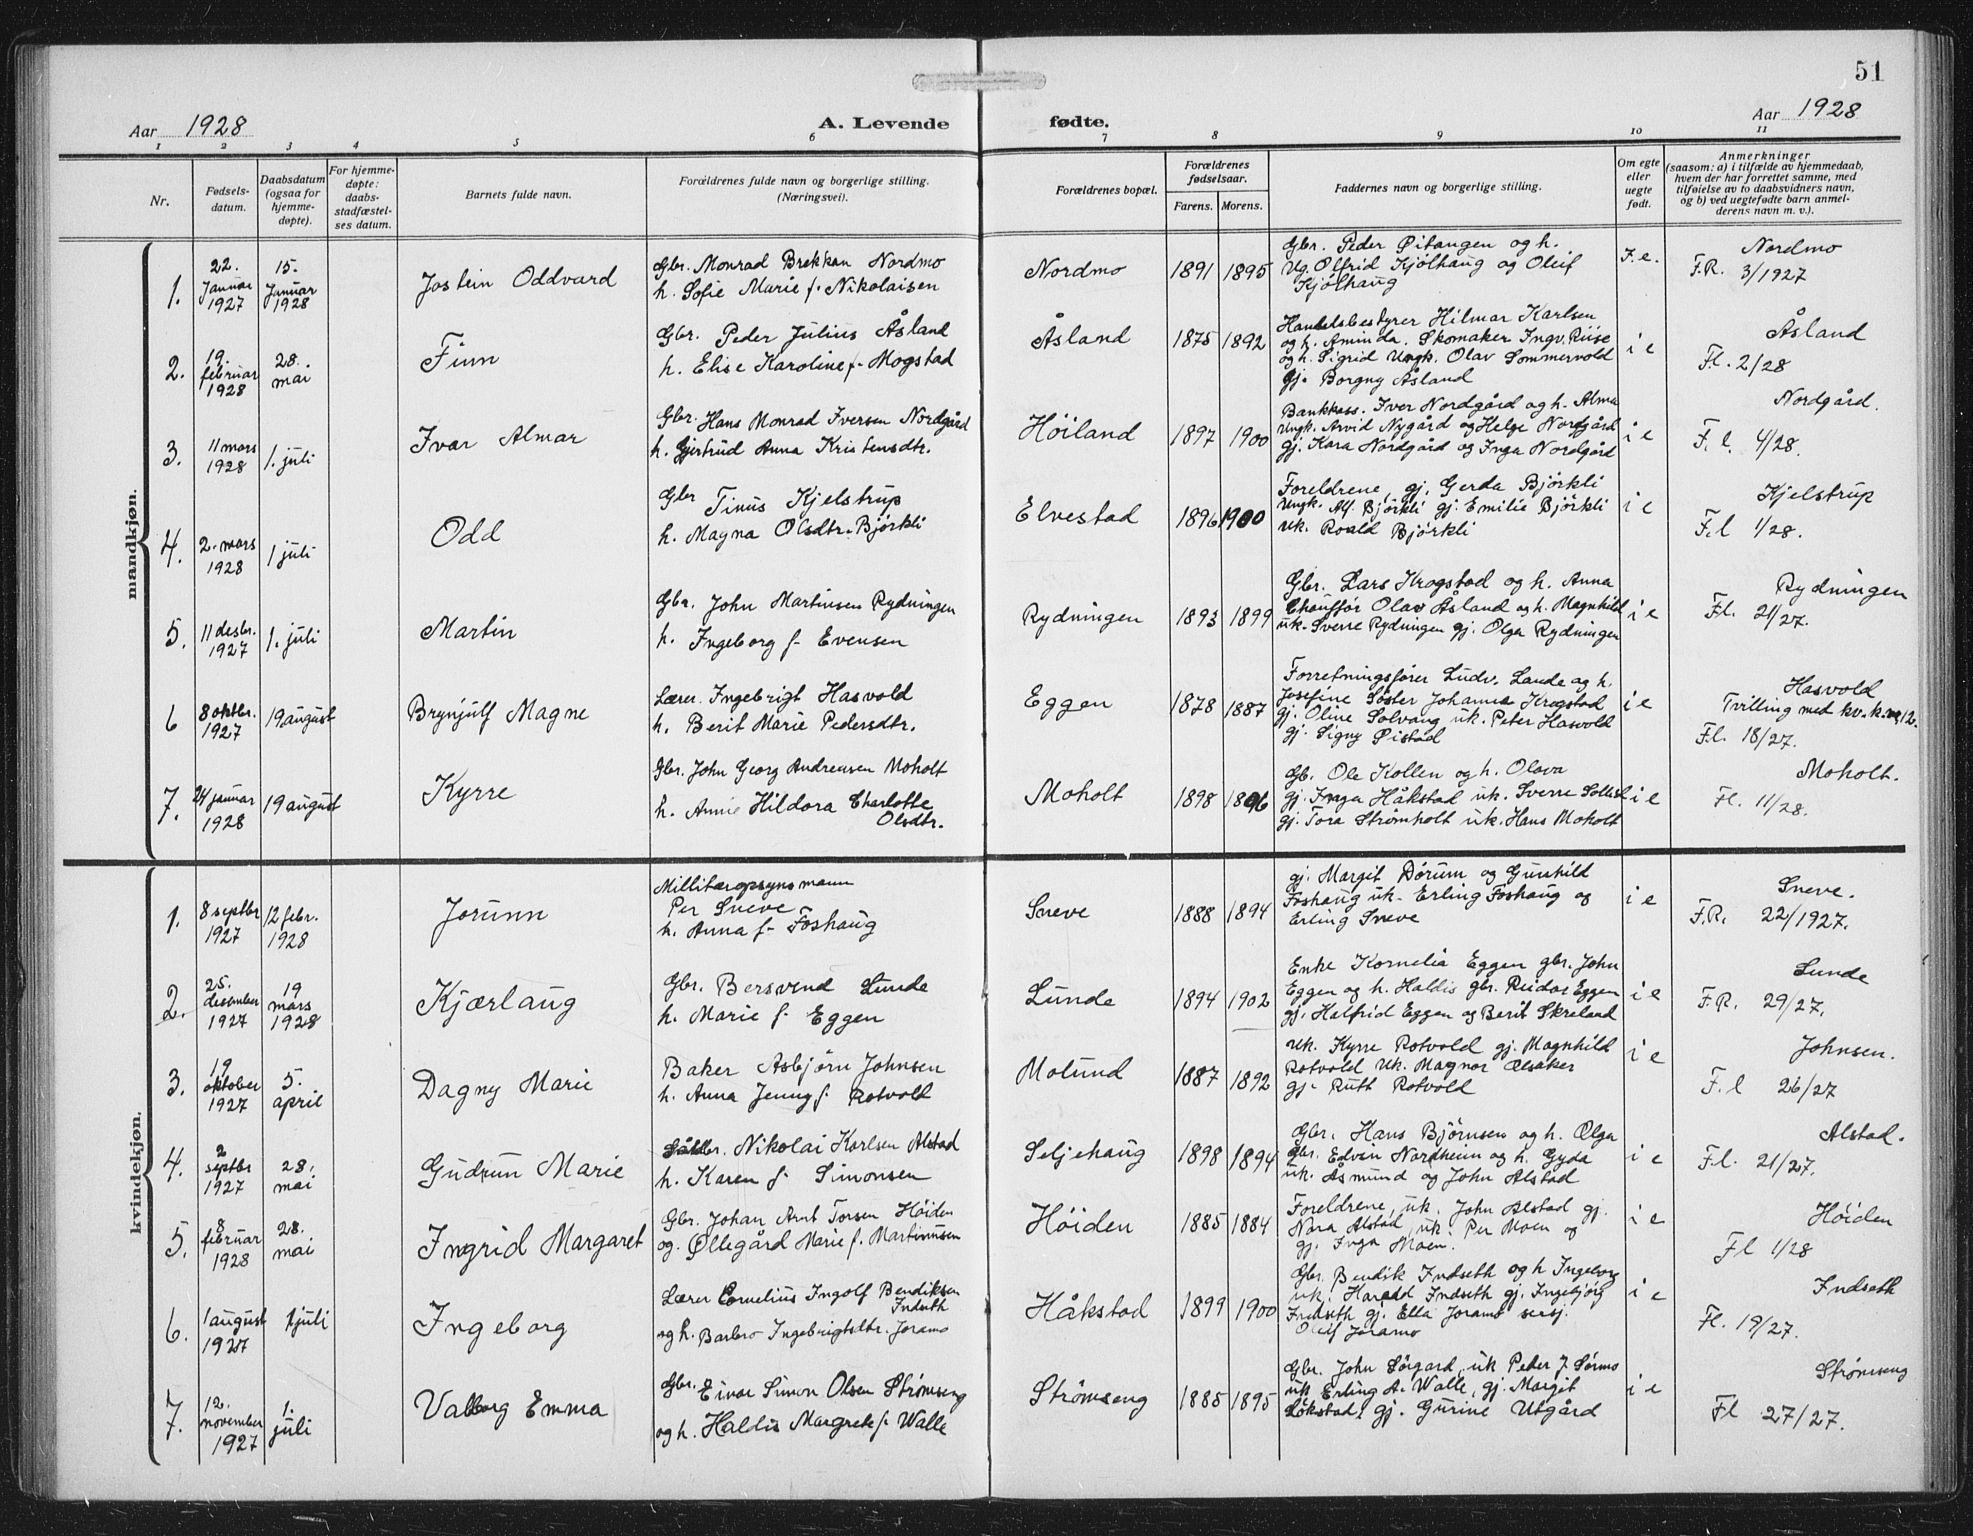 51
Aar 1928
A. Levende fødte.
Aar 1928
1 2 3 4 5 6 7 8 9 10 11
Nr.
Fødsels-
datum.
Daabsdatum
(ogsaa for
hjemme-
døpte).
For hjemme-
døpte:
daabs-
stadfæstel-
ses datum.
Barnets fulde navn.
Forældrenes fulde navn og borgerlige stilling.
(Næringsvei).
Forældrenes bopæl.
Forældrenes
fødselsaar.
Farens. Morens.
Faddernes navn og borgerlige stilling.
Om egte
eller
uegte
født.
Anmerkninger
(saasom: a) i tilfælde av hjemmedaab,
hvem der har forrettet samme, med
tilføielse av to daabsvidners navn,
og b) ved uegtefødte barn anmel-
derens navn m. v.).
mandkjøn.
1.
22.
Januar
1927
15.
Januar
1928
Jostein Oddvard
Gbr. Monrad Brekkan Nordmo
h. Sofie Marie f. Nikolaisen
Nordmo
1891 1895
Gbr. Peder Øitangen og h.
Ug. Olfrid Kjølhaug og Oleif
Kjølhaug
I.e.
Nordmo
F.R. 3/1927
2.
19.
februar
1928
28.
mai
Finn
Gbr. Peder Julius Åsland
h. Elise Karoline f. Mogstad
Åsland
1875 1892
Handelsbestyrer Hilmar Karlsen
og h. Aminda. Skomaker Ingv. Riise
og h. Sigrid Ungk. Olav Sommervold
Gj. Borgny Åsland
i e
Åsland
Fl. 2/28
3.
11 mars
1928
1. juli
Ivar Almar
Gbr. Hans Monrad Iversen Nordgård
h. Gjertrud Anna Kristensdtr.
Høiland
1897 1900
Bankkass. Iver Nordgård og h. Alma
Ungk. Arvid Nygård og Helge Nordgård
gj. Kara Nordgård og Inga Nordgård
i e
Nordgård.
F. l. 4/28.
4.
2. mars
1928
1 juli
Odd
Gbr Tinus Kjelstrup
h. Magna Olsdtr. Bjørkli
Elvestad
1896 1900
Foreldrene, gj. Gerda Bjørkli
Ungk. Alf. Bjørkli gj. Emilie Bjørkli
uk. Roald Bjørkli
i e
Kjelstrup
F.l 1/28.
5.
11 desbr.
1927
1. juli
Martin
Gbr. John Martinsen Rydningen
h. Ingeborg f. Evensen
Rydningen
1893 1899
Gbr. Lars Krogstad og h. Anna
Chauffør Olav Åsland og h. Magnhild
uk. Sverre Rydningen gj. Olga Rydningen
i e
Rydningen
Fl. 21/27.
6
8 oktbr.
1927
19 august
Brynjulf Magne
Lærer. Ingebrigt Hasvold
h. Berit Marie Pedersdtr.
Eggen
1878 1887
Forretningsfører Ludv. Lande og h.
Josefine Søster Johanna Krogstad
gj. Oline Solvang uk. Peter Hasvold
gj. Signy Øistad
i e
Hasvold
Tvilling med kv.k. nr 12.
F.l. 18/27.
7.
24 januar
1928
19 august
Kyrre
Gbr. John Georg Andreasen Moholt
h. Annie Hildora Charlotte
Olsdtr.
Moholt
1898 1896
Gb. Ole Kollen og h. Olava
gj. Inga Håkstad uk. Sverre Sollid
gj. Tora Strømholt uk. Hans Moholt
i e
Moholt.
Fl. 11/28.
kvindekjøn.
1.
8 septbr
1927
12 febr.
1928
Jorunn
Millitæropsynsmann
Per Sneve
h. Anna f. Foshaug
Sneve
1888 1894
gj. Margit Dørum og Gunhild
Foshaug uk. Erling Foshaug og
Erling Sneve
i e
Sneve.
F.R. 22/1927.
2.
25.
desember
1927
19
mars
1928
Kjærlaug
Gbr. Bersvend Lunde
h. Marie f. Eggen
Lunde
1894 1902
Enke Kornelia Eggen gbr. John
Eggen og h. Haldis gbr. Reidar Eggen
gj. Halfrid Eggen og Berit Skreland
i e
Lunde
F.R. 29/27.
3.
19
oktober
1927
5.
april
Dagny Marie
Baker Asbjørn Johnsen
h. Anna Jenny f. Rotvold
Molund
1887 1892
uk. Kyrre Rotvold gj. Magnhild
Rotvold Uk. Magnor Alsaker
gj. Ruth Rotvold
i e
Johnsen.
F. l 26/27
4.
2
septbr
1927
28.
mai
Gudrun Marie
Nikolai Karlsen Alstad
h. Karen f. Simonsen
Seljehaug
1898 1894
Gbr. Hans Bjørnsen og h. Olga
Gbr. Edvin Nordheim og h. Gyda
uk. Åsmund og John Alstad
i e
Alstad.
Fl. 21/27.
5.
8
februar
1928
28.
mai
Ingrid Margaret
Gbr. Johan Arnt Torsen Høiden
og. Øllegård Marie f. Martinusen
Høiden
1885 1884
Foreldrene, uk. John Alstad gj.
Nora Alstad, uk. Per Moen og
gj. Inga Moen.
i e
Høiden
Fl 1/28
6.
1 august
1927
1 juli
Ingeborg
Lærer Cornelius Ingolf Bendiksen
Indseth
og h. Barbro Ingebrigtsdtr. Joramo
Håkstad
1899 1900
Gbr. Bendik Indseth og h Ingeborg
uk. Harald Indseth gj. Ingebjørg
Indseth gj. Ella Joramo sersj.
Olaf Joramo
i e
Indseth
Fl. 19/27.
7.
12.
november
1927
1.
juli
Valborg Emma
Gbr. Einar Simon Olsen Strømseng
og h. Haldis Margrete f. Walle
Strømseng
1885 1895
Gbr. John Sørgard, uk Peder J. Sørmo
uk Erling A. Walle, gj. Margit
Løkstad, gj. Gurine Utgård
i e
Strømseng
Fl 27/27.